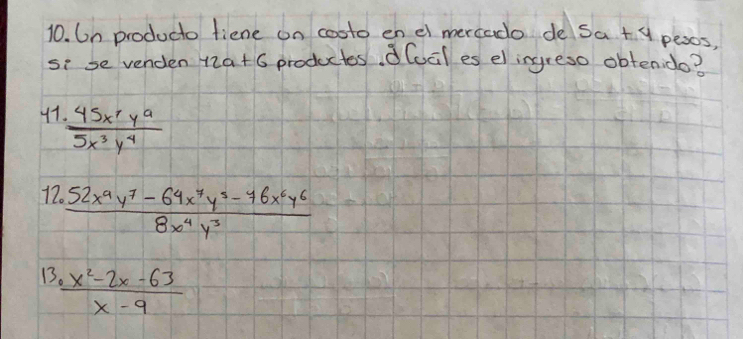 10. Un producto tiene un costo en el mercado de 5a + 4 pesos,
si se venden 12a+6 productos. ¿Cuál es el ingreso obtenido?
11. 45x⁷y⁹
5x³y⁴
12. 52x⁹y⁷ - 64x⁷y⁵ - 16x⁶y⁶
8x⁴y³
13. x²-2x-63
x-9